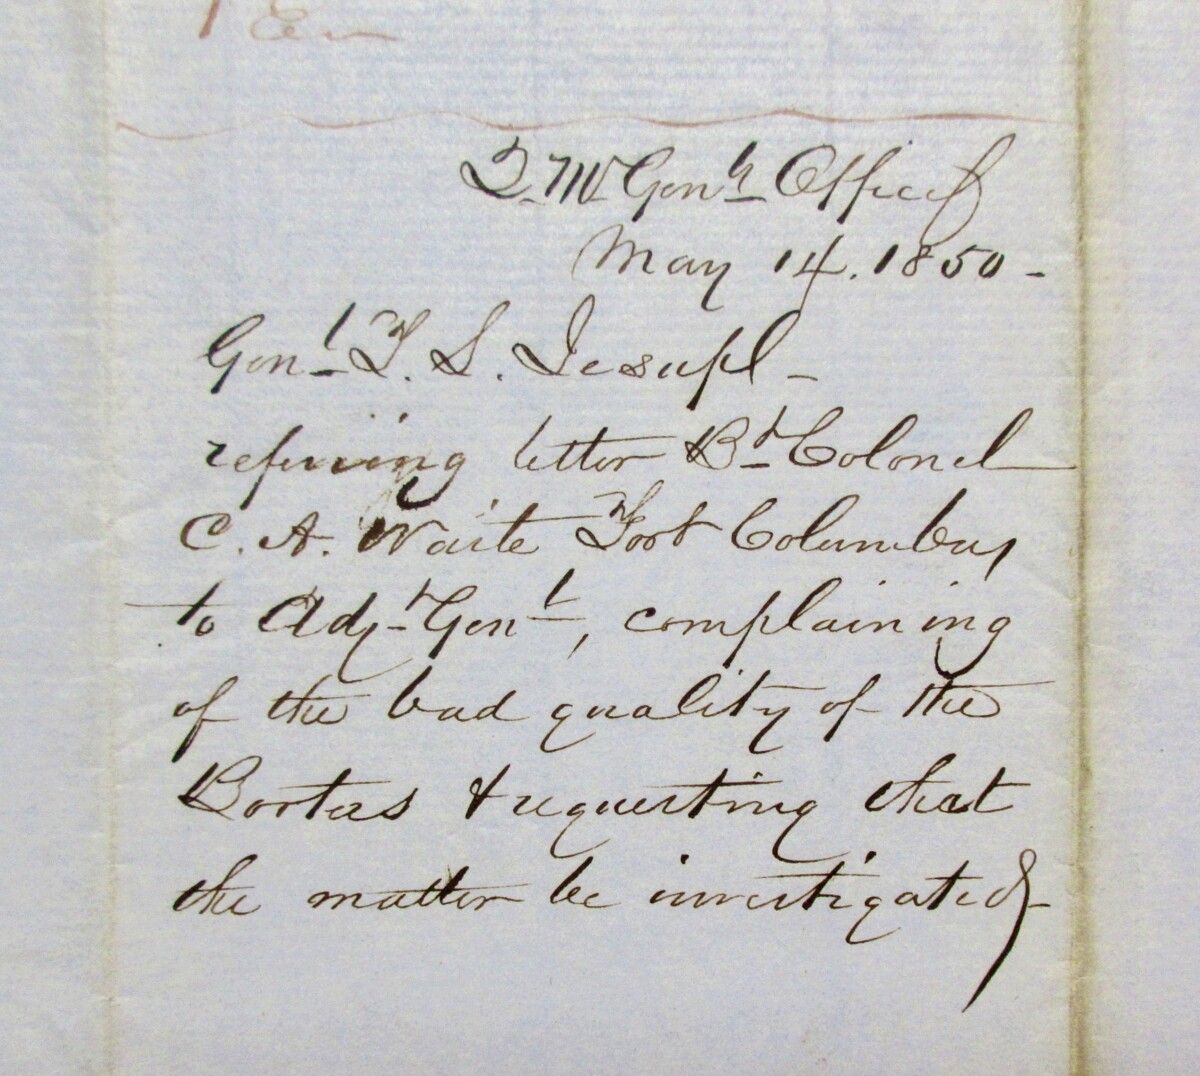 Q. M Genls Office
May 14. 1850 -
Genl T. S. Jesup -
referring letter Bt Colonel
C. A. Waite Fort Columbus
to Adjt Genl, complaining
of the bad quality of the
& requesting that
the matter be investigated